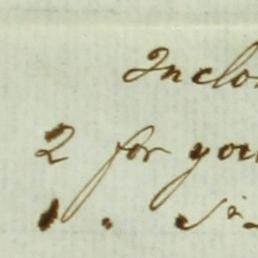 Inclo
2 for you